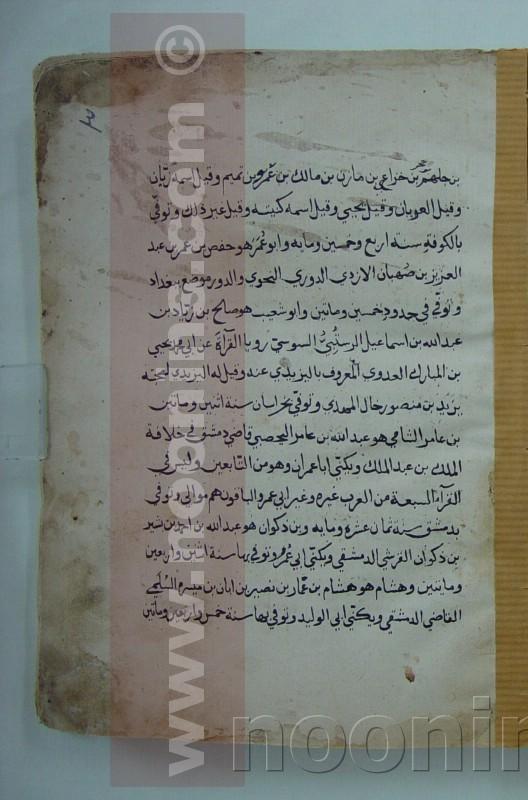 ٣
بن جلهم بن خزاعي بن مازن بن مالك بن عمرو بن تميم وقيل اسمه زبان
وقيل العريان وقيل يحيى وقيل اسمه كنيته وقيل غير ذلك وتوفي
بالكوفة سنة اربع وخمسين ومايه وابو عمر هو حفص بن عمر بن عبد
العزيز بن صهبان الازدي الدوري النحوي والدور موضع ببغداد
وتوفي في حدود خمسين وماتين وابو شعيب هو صالح بن زياد بن
عبدالله بن اسماعيل الرستبي السوسي رويا القرأة عن ابي محمد يحيى
بن المبارك العدوي المعروف باليزيدي عنه وقيل له اليزيدي لصحبته
يزيد بن منصور خال المهدي وتوفي بخراسان سنة اثنين وماتين
بن عامر الشامي هو عبدالله بن عامر اليحصبي قاضي دمشق في خلافة
الملك بن عبد الملك ويكنى ابا عمران وهو من التابعين وليس في
القرآء السبعة من العرب غيره وغير ابي عمرو والباقون هم موالي وتوفي
بدمشق سنة ثمان عشرة ومايه وبن ذكوان هو عبدالله بن احمد بن بشير
بن ذكوان القرشي الدمشقي ويكنى ابي عمرو وتوفي بها سنة اثنين واربعين
وماتين وهشام هو هشام بن عمار بن نصير بن ابان بن ميسرة السلمي
القاضي الدمشقي ويكنى ابي الوليد وتوفي بها سنة خمس واربعين وماتين
www.noorlib.com ©
noorin